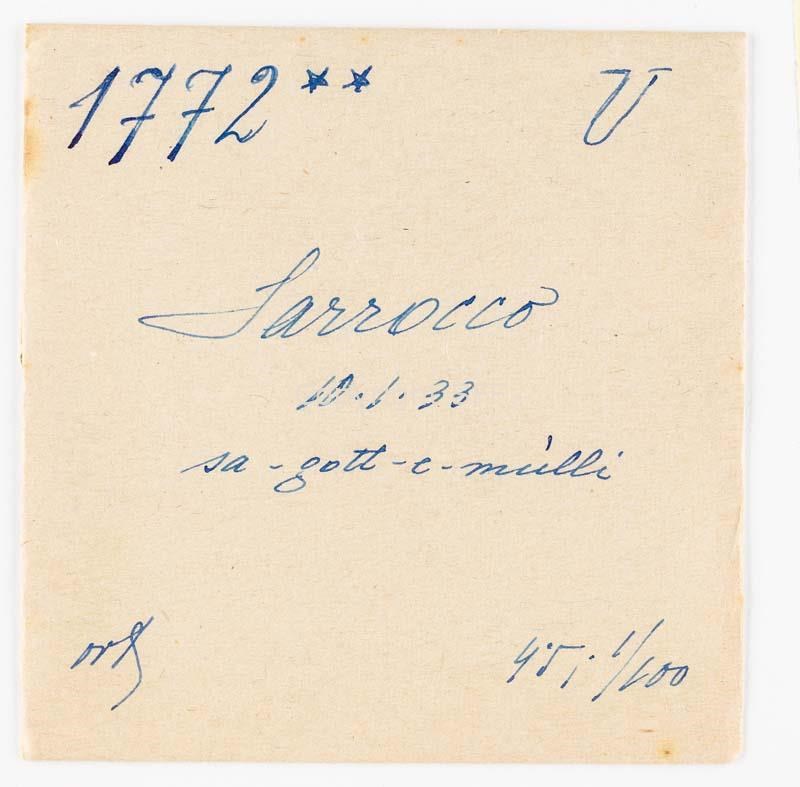 1772** U
Sarrocco
10.1.33
sa-gott-e-mùlli
ort
4.5; 1/100